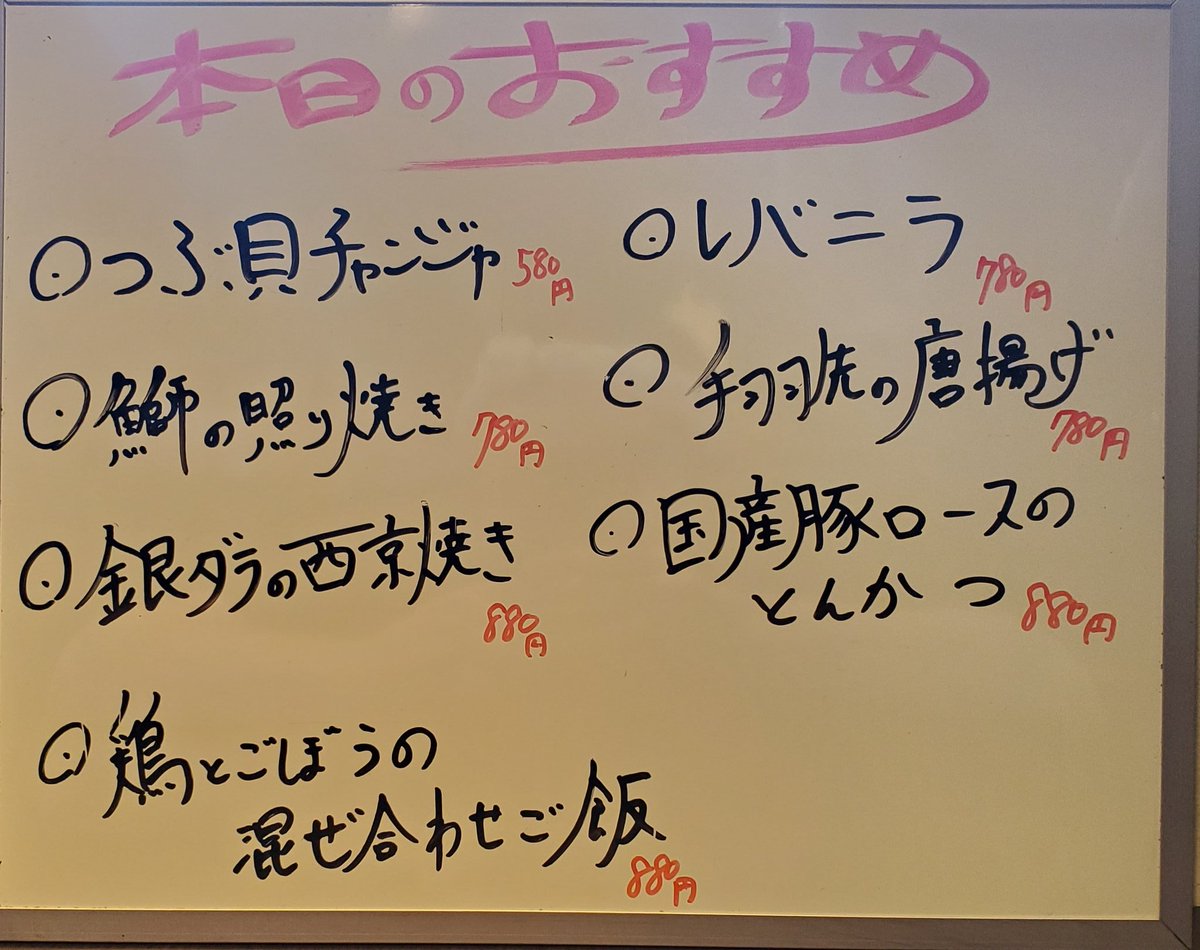 本日のおすすめ
⊙つぶ貝チャンジャ 580円
⊙鰤の照り焼き 780円
⊙銀ダラの西京焼き 880円
⊙鶏とごぼうの
混ぜ合わせご飯 880円
⊙レバニラ 780円
⊙手羽先の唐揚げ 780円
⊙国産豚ロースの
とんかつ 880円